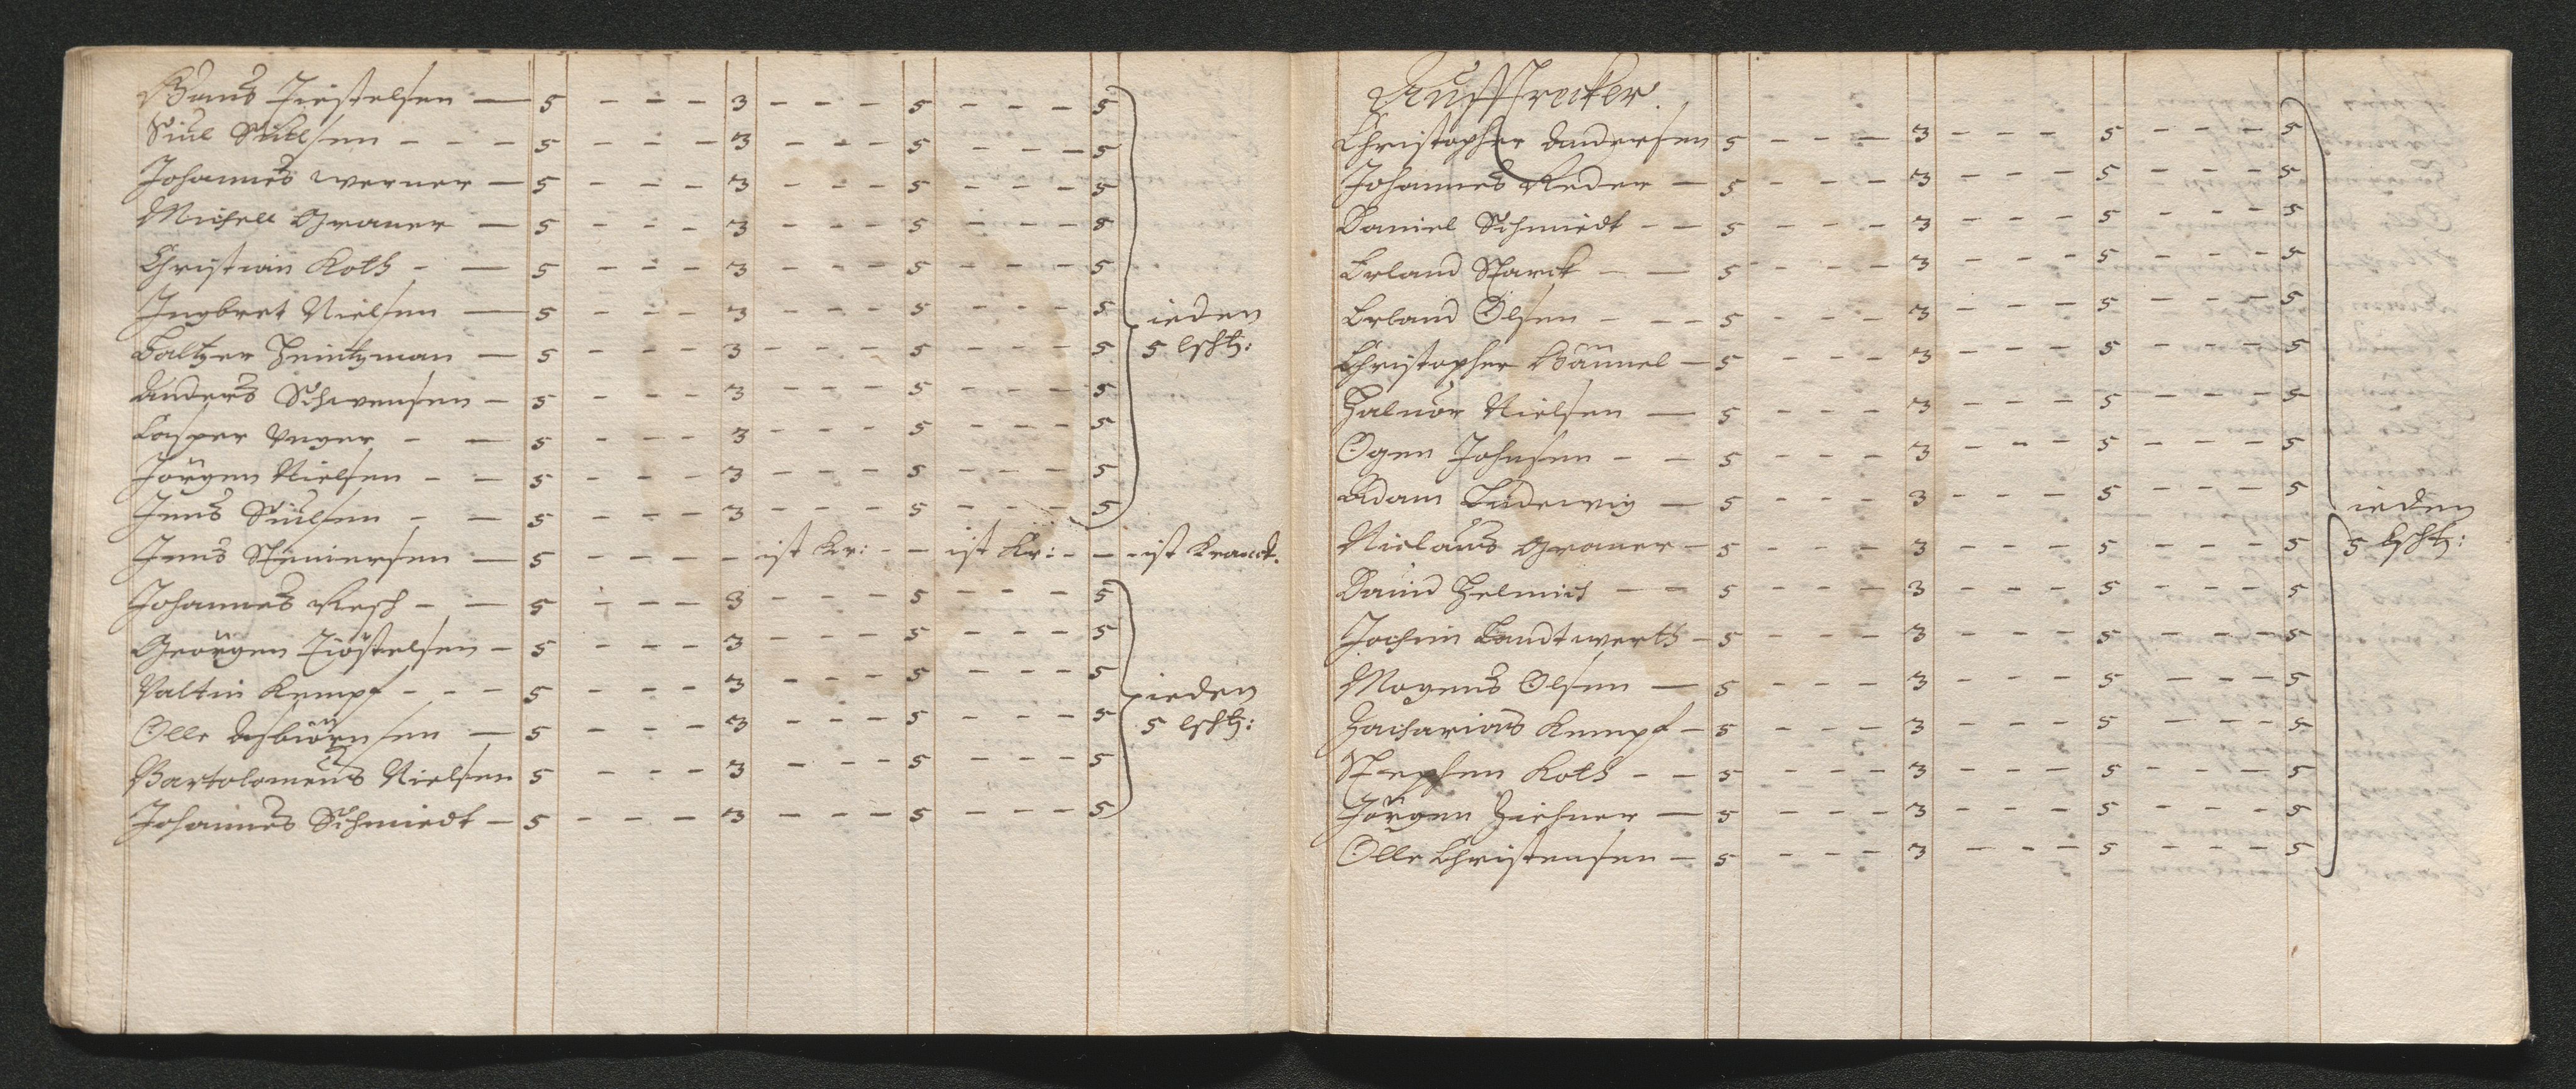 Hans Tiöstelsen — 5 - - - 3 - - - 5 - - - 5
Siul Siulsen - - - 5 - - - 3 - - - 5 - - - 5
Johannes Werner — 5 - - - 3 - - - 5 - - - 5
Michell Graner — 5 - - - 3 - - - 5 - - - 5
Christian Koth - — 5 - - - 3 - - - 5 - - - 5
Ingbret Nielsen — 5 - - - 3 - - - 5 - - - 5
ieden
Baltzer Heintzman — 5 - - - 3 - - - 5 - - - 5
5 lschtz:
Anders Schwensen - 5 - - - 3 - - - 5 - - - 5
Casper Unger - — 5 - - - 3 - - - 5 - - - 5
Jörgen Nielsen - — 5 - - - 3 - - - 5 - - - 5
Jens Siulsen - — 5 - - - 3 - - - 5 - - - 5
Jens Steniersen — 5 - - - - ist Kr: - - ist Kr: - - - ist Kranck.
Johannes Resch - — 5 - - - 3 - - - 5 - - - 5
Geörgen Tiöstelsen - 5 - - - 3 - - - 5 - - - 5
Valtin Kempf - - - 5 - - - 3 - - - 5 - - - 5
ieden
Olle Asbiörnsen — 5 - - - 3 - - - 5 - - - 5
5 lschtz:
Bartolomeus Nielsen 5 - - - 3 - - - 5 - - - 5
Johannes Schmiedt - 5 - - - 3 - - - 5 - - - 5
Ausstrecker.
Christopher Andersen 5 - - - 3 - - - 5 - - - 5
Johannes Reder — 5 - - - 3 - - - 5 - - - 5
Daniel Schmiedt - - 5 - - - 3 - - - 5 - - - 5
Erland Starck - — 5 - - - 3 - - - 5 - - - 5
Erland Olsen - - - 5 - - - 3 - - - 5 - - - 5
Christopher Bäumel — 5 - - - 3 - - - 5 - - - 5
Haluor Nielsen — 5 - - - 3 - - - 5 - - - 5
Ogen Johnsen - - 5 - - - 3 - - - 5 - - - 5
Adam Ludewig — 5 - - - 3 - - - 5 - - - 5
ieden
Niclaus Graner - 5 - - - 3 - - - 5 - - - 5
5 lschtz:
Dauid Helmich - - 5 - - - 3 - - - 5 - - - 5
Jochim Landtwerth - 5 - - - 3 - - - 5 - - - 5
Mogens Olsen — 5 - - - 3 - - - 5 - - - 5
Zacharias Kempf - 5 - - - 3 - - - 5 - - - 5
Stephen Koth - - 5 - - - 3 - - - 5 - - - 5
Jörgen Ziehner — 5 - - - 3 - - - 5 - - - 5
Olle Christensen - 5 - - - 3 - - - 5 - - - 5